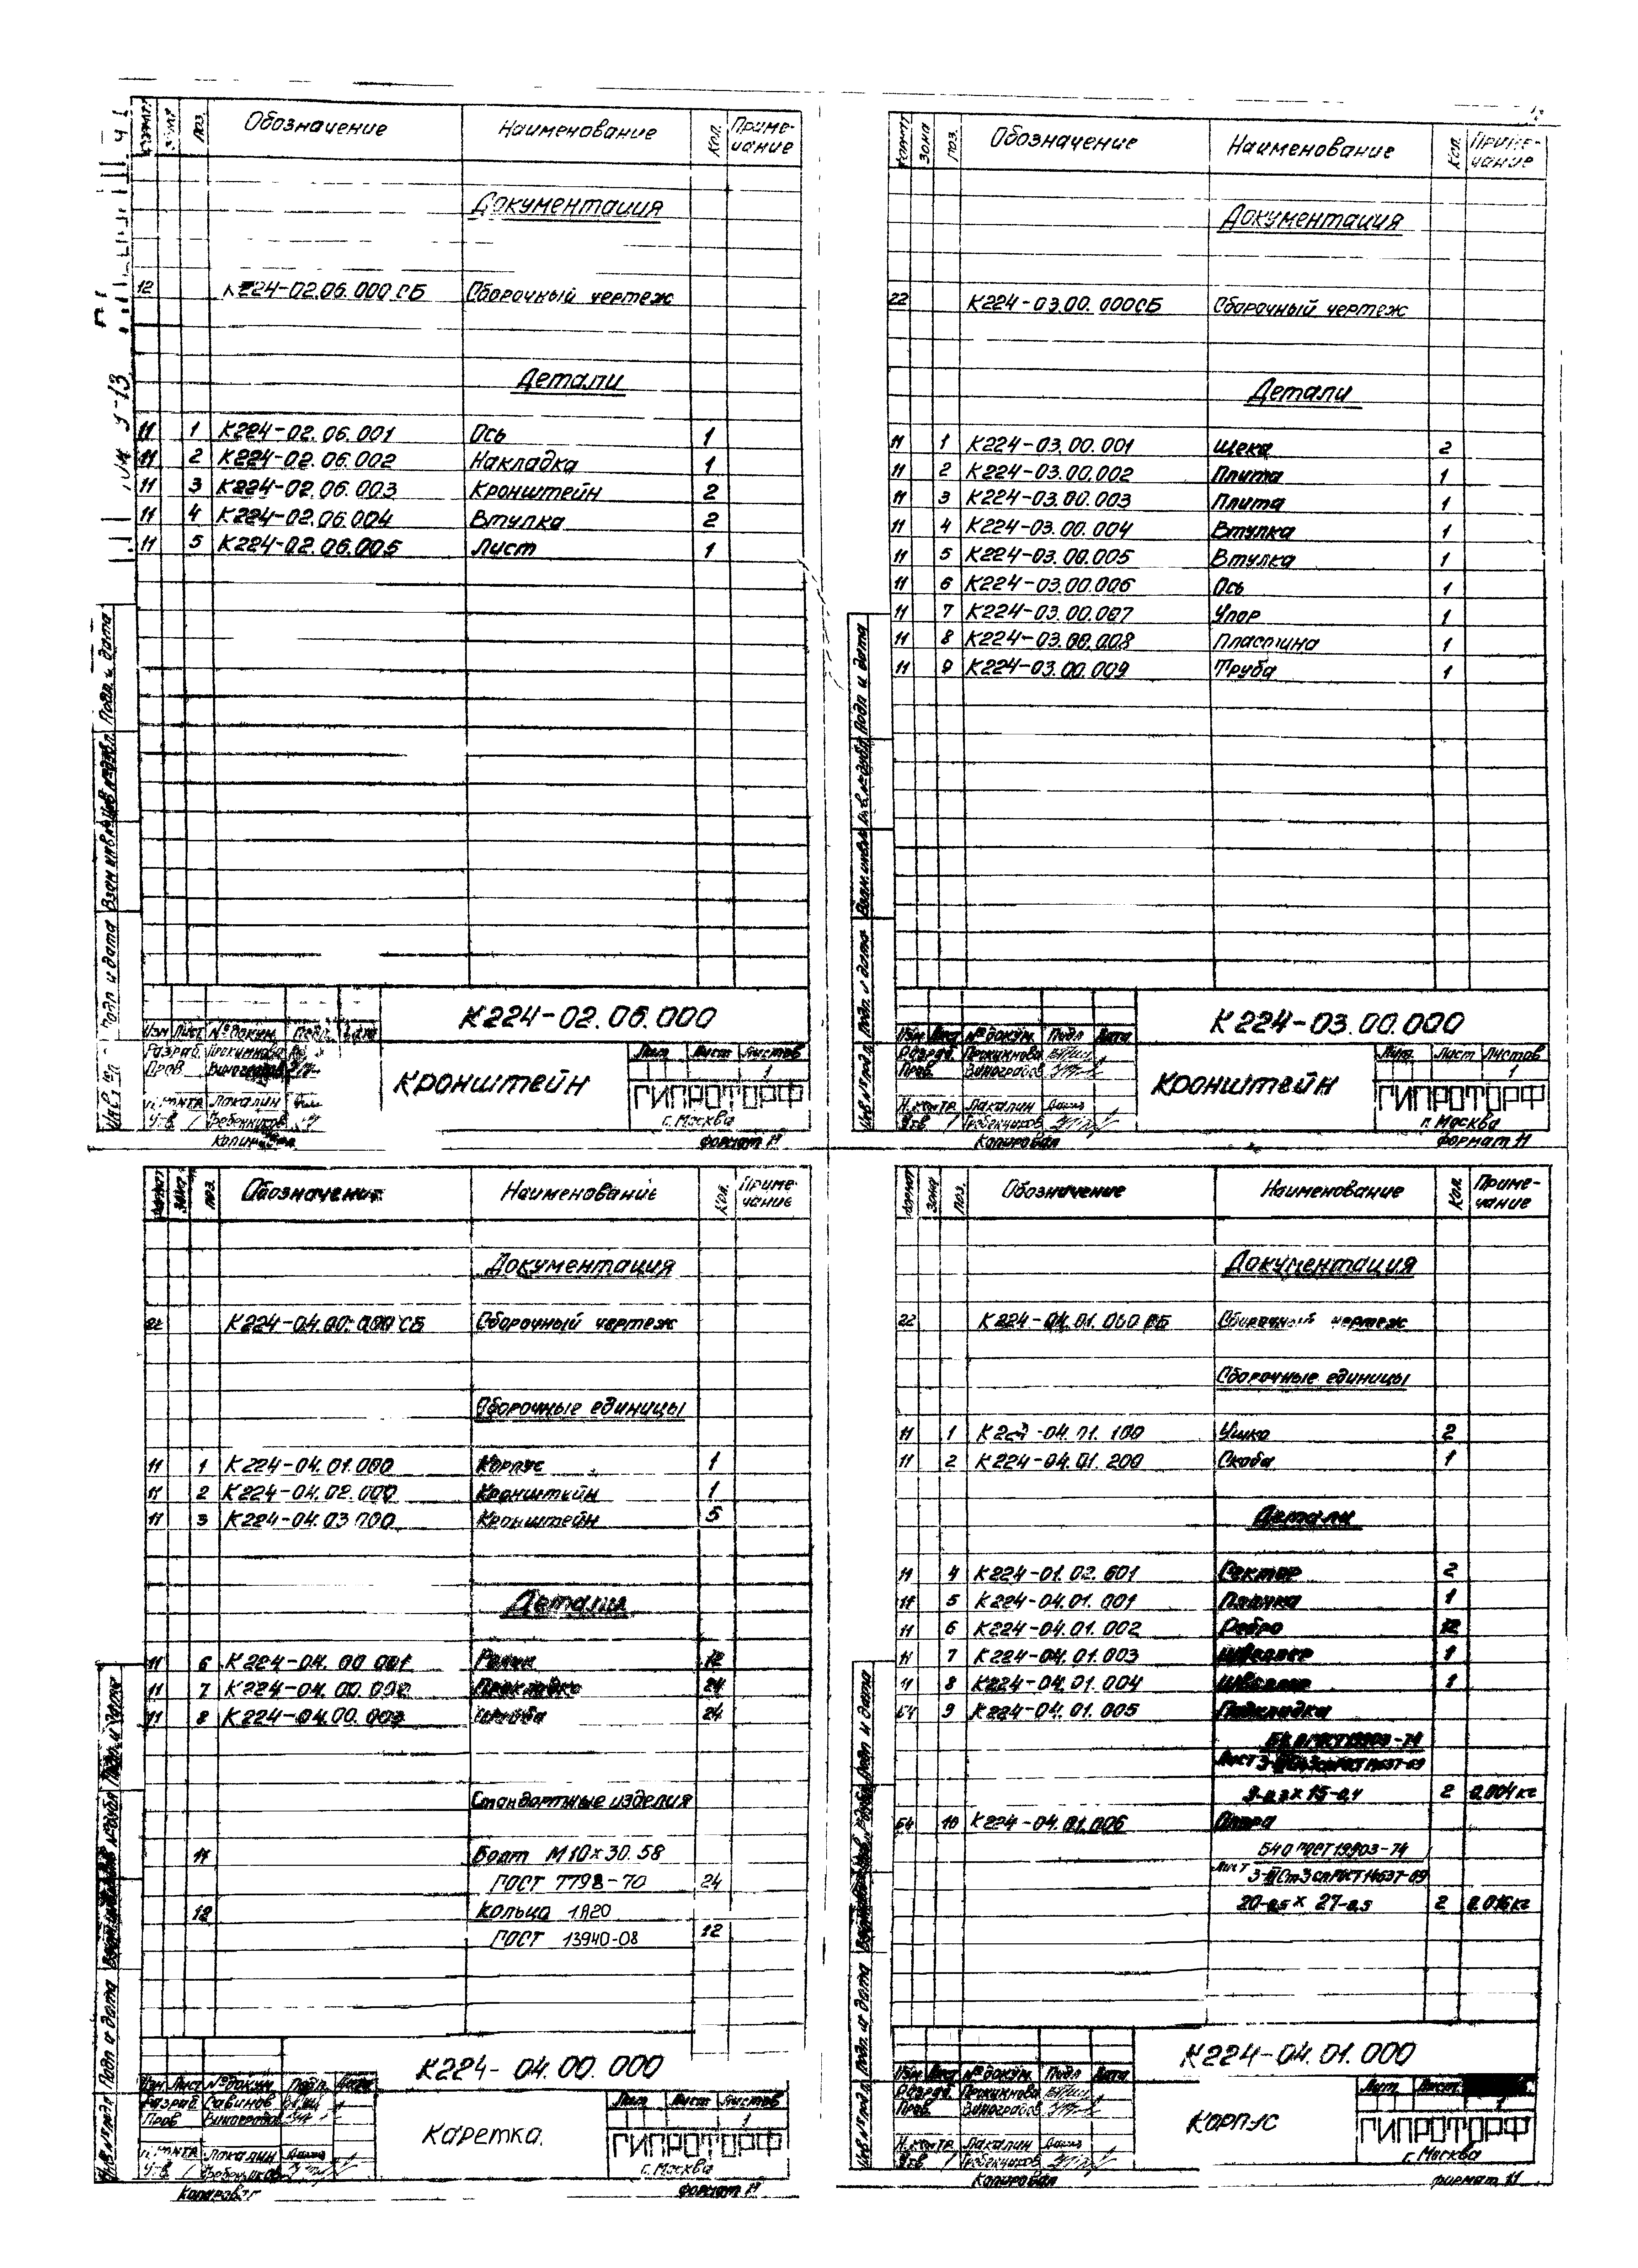 Формат Зона Поз. Обозначение Наименование Кол. Приме-чание
Документация
12 К224-02.06.000 СБ Сборочный чертеж
Детали
11 1 К224-02.06.001 Ось 1
11 2 К224-02.06.002 Накладка 1
11 3 К224-02.06.003 Кронштейн 2
11 4 К224-02.06.004 Втулка 2
11 5 К224-02.06.005 Лист 1
Подп. и дата
Взам инв.№
Подп и дата
К224-02.06.000
Изм Лист № докум. Подп. Дата
Разраб. Прокимнова
Пров. Виноградов
Н.контр. Лакалин
Утв
Кронштейн
Лит Лист Листов
1
ГИПРОТОРФ
г. Москва
Копировал Формат 11
Формат Зона Поз. Обозначение Наименование Кол. Приме-чание
Документация
22 К224-03.00.000СБ Сборочный чертеж
Детали
11 1 К224-03.00.001 Щека 2
11 2 К224-03.00.002 Плита 1
11 3 К224-03.00.003 Плита 1
11 4 К224-03.00.004 Втулка 1
11 5 К224-03.00.005 Втулка 1
11 6 К224-03.00.006 Ось 1
11 7 К224-03.00.007 Упор 1
11 8 К224-03.00.008 Пластина 1
11 9 К224-03.00.009 Труба 1
Подп и дата
Инв.№ дубл
Взам.инв.№
Подп. и дата
Инв № подл.
К224-03.00.000
Изм Лист № докум. Подп Дата
Разраб. Прокимнова
Пров. Виноградов
Н.контр. Лакалин
Утв
Кронштейн
Лит. Лист Листов
1
ГИПРОТОРФ
г. Москва
Копировал Формат 11
Формат Зона Поз. Обозначение Наименование Кол. Приме-чание
Документация
22 К224-04.00.000 СБ Сборочный чертеж
Сборочные единицы
11 1 К224-04.01.000 Корпус 1
11 2 К224-04.02.000 Кронштейн 1
11 3 К224-04.03.000 Кронштейн 5
Детали
11 6 К224-04.00.001 Ролик 12
11 7 К224-04.00.002 Прокладка 24
11 8 К224-04.00.003 Шайба 24
Стандартные изделия
11 Болт М10×30.58
ГОСТ 7798-70 24
12 Кольца 1А20
ГОСТ 13940-68 12
Подп. и дата
Подп и дата
Инв № подл
К224-04.00.000
Изм Лист № докум. Подп. Дата
Разраб. Савинов
Пров Виноградов
Н.контр Лакалин
Утв
Каретка.
Лит Лист Листов
1
ГИПРОТОРФ
г. Москва
Копировал Формат 11
Формат Зона Поз. Обозначение Наименование Кол. Приме-чание
Документация
22 К224-04.01.000 СБ Сборочный чертеж
Сборочные единицы
11 1 К224-04.01.100 Ушко 2
11 2 К224-04.01.200 Скоба 1
Детали
11 4 К224-01.02.601 Сектор 2
11 5 К224-04.01.001 Планка 1
11 6 К224-04.01.002 Ребро 12
11 7 К224-04.01.003 Швеллер 1
11 8 К224-04.01.004 Швеллер 1
БЧ 9 К224-04.01.005 Подкладка
2 0,004кг
БЧ 10 К224-04.01.006 Опора
ГОСТ 19903-74
Лист
20-0,5 × 27-0,5 2 0,016кг
Подп и дата
Подп. и дата
Инв № подл.
К224-04.01.000
Изм Лист № докум. Подп Дата
Разраб. Прокимнова
Пров. Виноградов
Н.контр. Лакалин
Утв
Корпус
Лит Лист
1
ГИПРОТОРФ
г. Москва
Копировал Формат 11